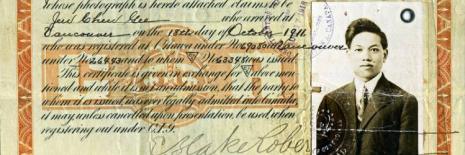 whose photograph is hereto attached claims to be
Jun Chew Gee who arrived at
Vancouver on the 18th day of October 1911
who was registered at Ottawa under No 69350 Vancouver
under No 26443 and to whom No 63348 was issued
This certificate is given in exchange for above men-
tioned and while it is an admission, that the party to
whom it is issued was legally admitted into Canada,
it may, unless cancelled upon presentation, be used, when
registering out under C.I.9.
CANADA